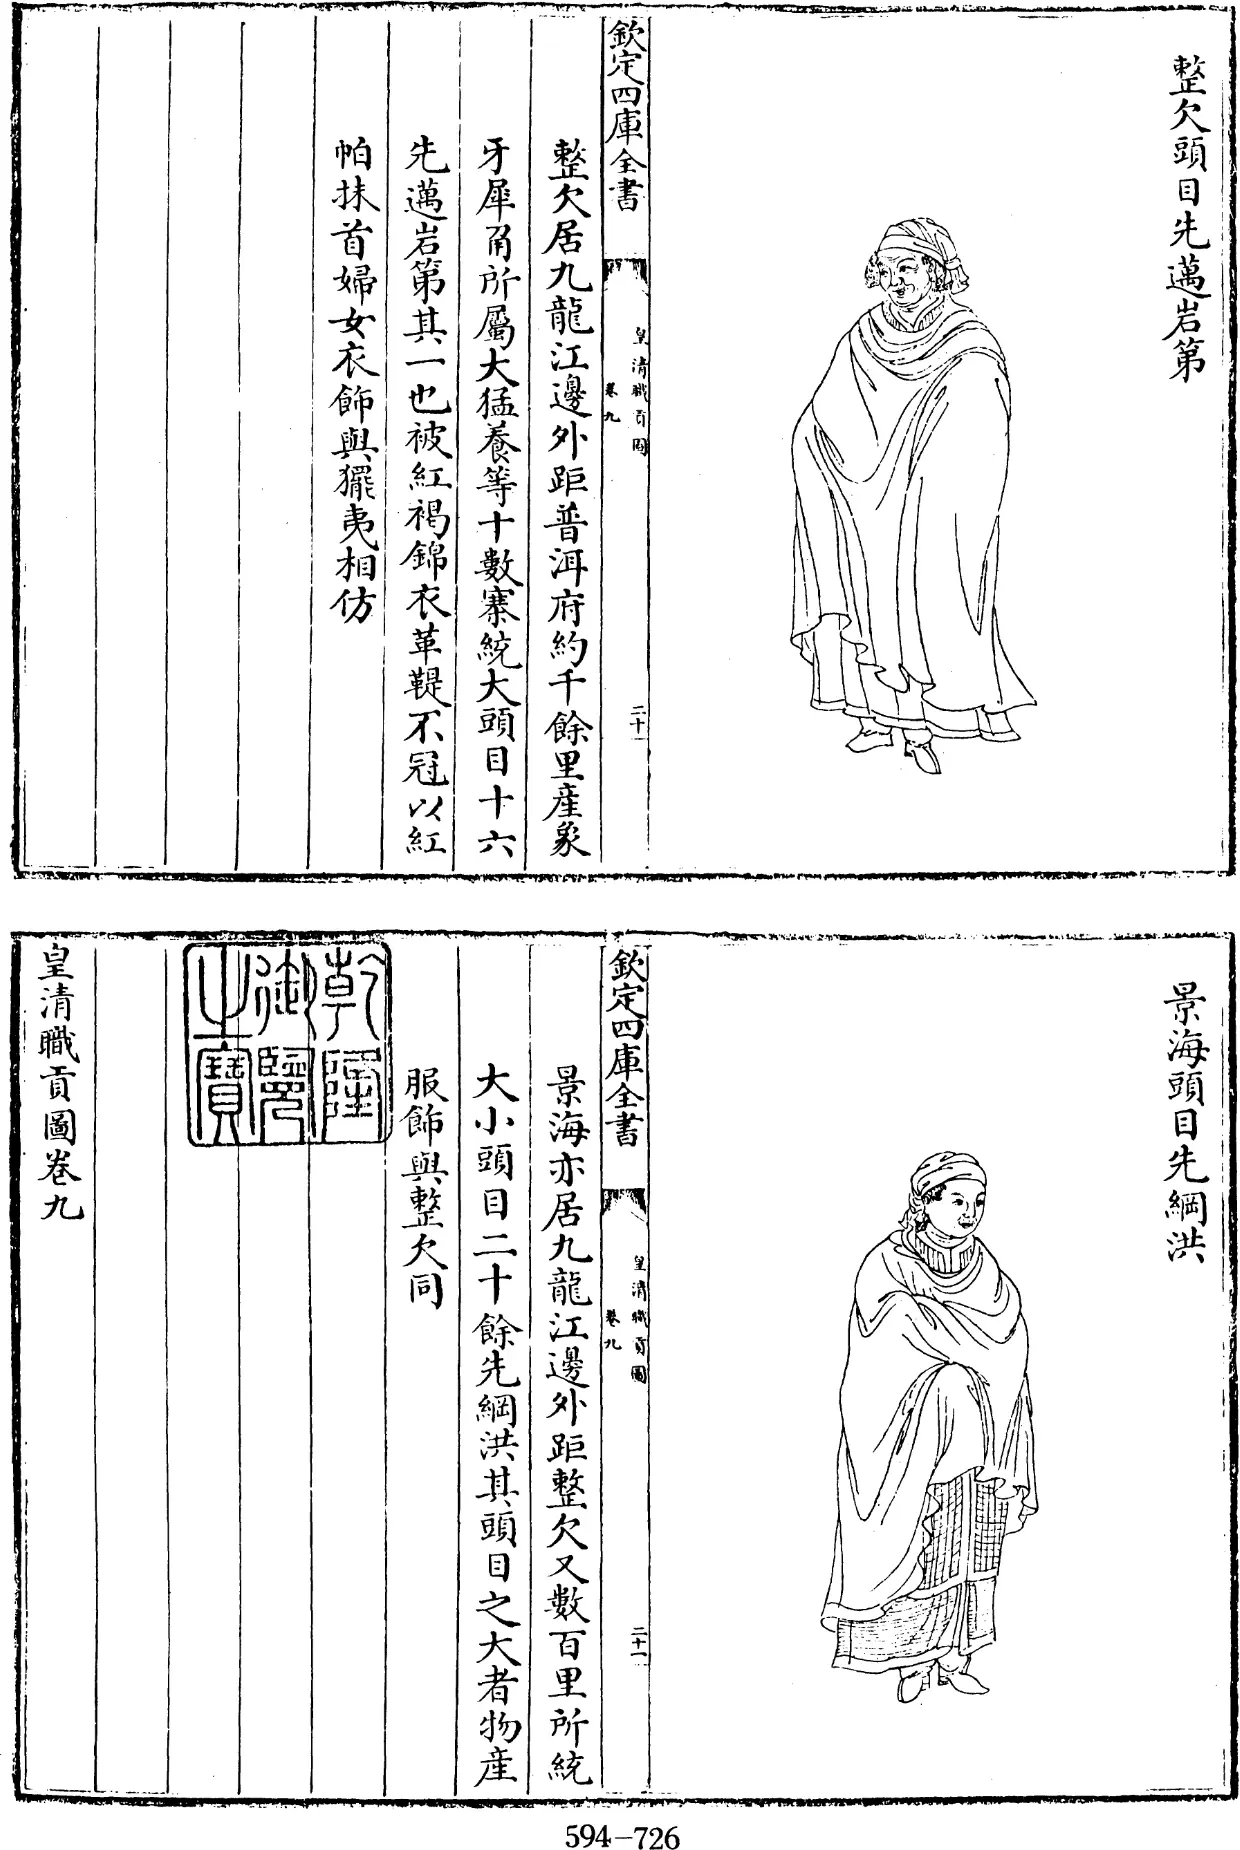 整欠頭目先邁岩第
欽定四庫全書
皇清職貢圖
卷九
二十
整欠居九龍江邊外距普洱府約千餘里產象
牙犀角所屬大猛養等十數寨統大頭目十六
先邁岩第其一也被紅褐錦衣革鞮不冠以紅
帕抹首婦女衣飾與玀夷相仿
景海頭目先綱洪
欽定四庫全書
皇清職貢圖
卷九
二十一
景海亦居九龍江邊外距整欠又數百里所統
大小頭目二十餘先綱洪其頭目之大者物產
服飾與整欠同
乾隆
御覽
之寶
皇清職貢圖卷九
594-726